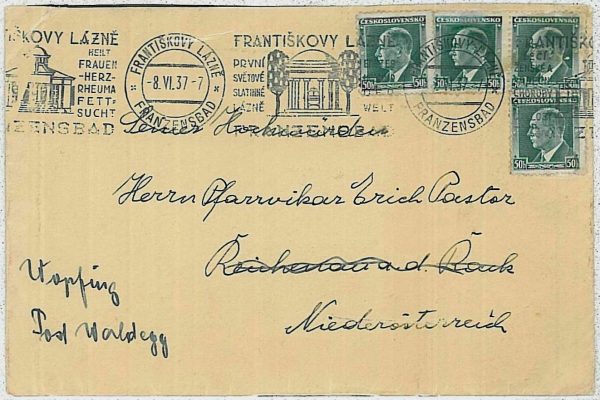 TIŠKOVY LÁZNĚ
HEILT
FRAUEN
-HERZ-
RHEUMA
FETT-
SUCHT
NZENSBAD
FRANTIŠKOVY LÁZNĚ
-8.VI.37-7
FRANZENSBAD
FRANTIŠKOVY LÁZNĚ
PRVNÍ
SVĚTOVÉ
SLATINNÉ
LÁZNĚ
WELT
FRANZENSBAD
ČESKOSLOVENSKO
50h
ČESKOSLOVENSKO
50h
ČESKOSLOVENSKO
50h
ČESKOSLOVENSKO
50h 50h
FRANZENSBAD
Seiner Hochwürden
Herrn Pfarrvikar Erich Pastor
Reichenau a. d. Rack
Niederösterreich
Wopfing
Post Waldegg